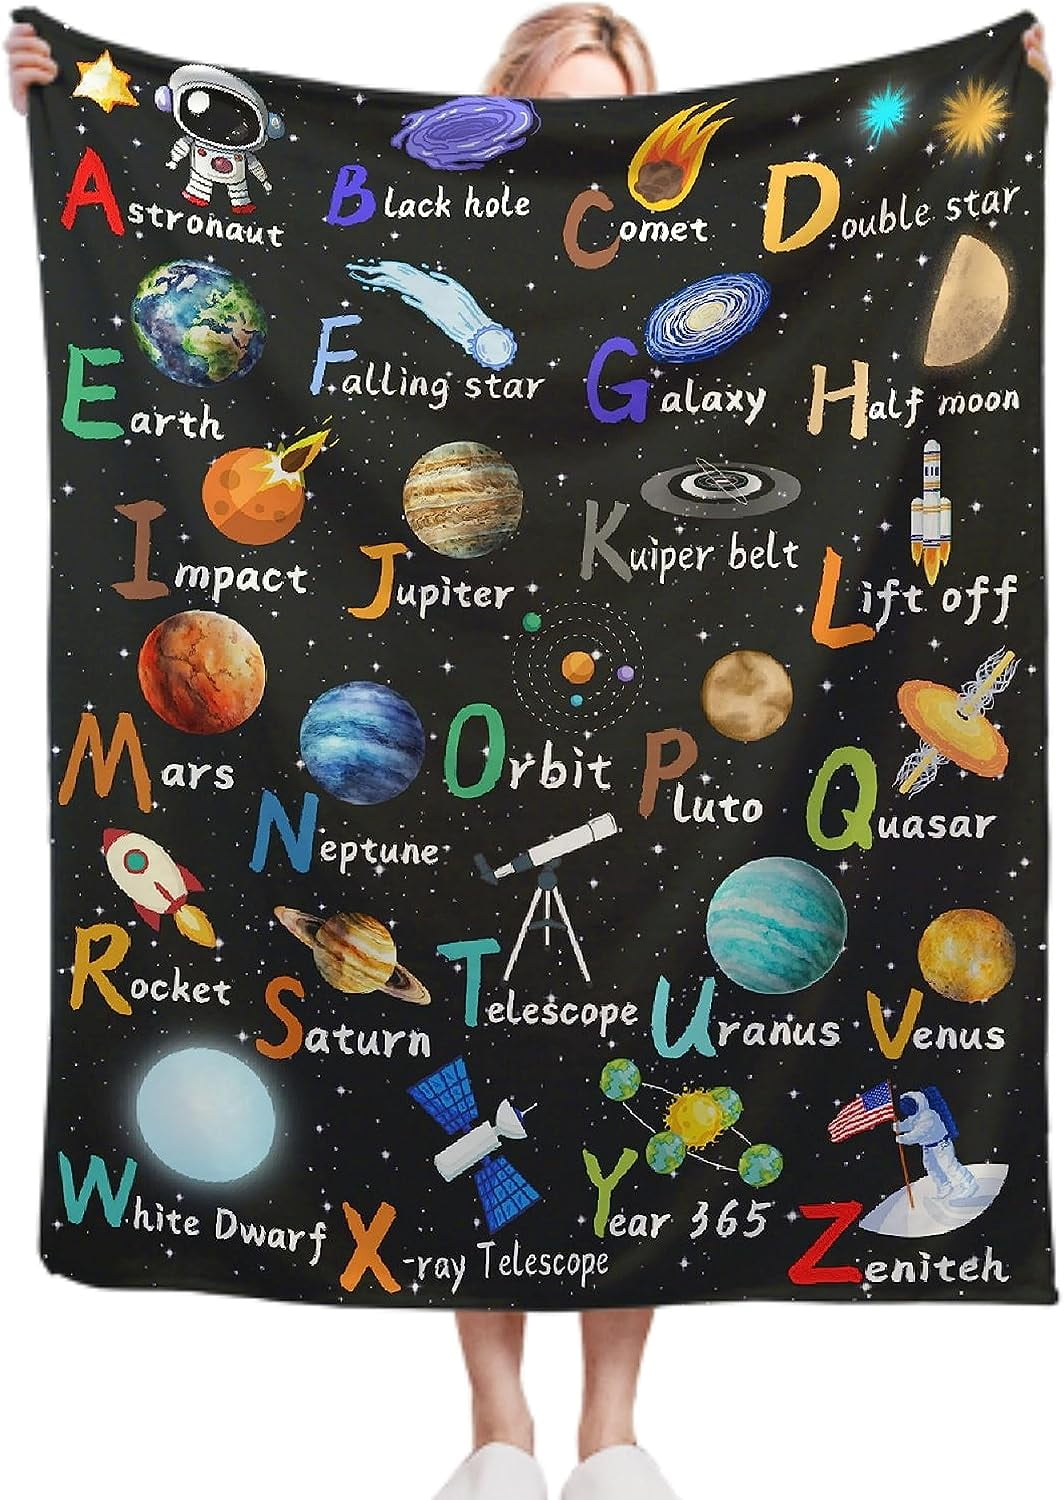 Astronaut
Black hole
Comet
Double star
Earth
Falling star
Galaxy
Half moon
Impact
Jupiter
Kuiper belt
Lift off
Mars
Neptune
Orbit
Pluto
Quasar
Rocket
Saturn
Telescope
Uranus
Venus
White Dwarf
X-ray Telescope
Year 365
Zeniteh